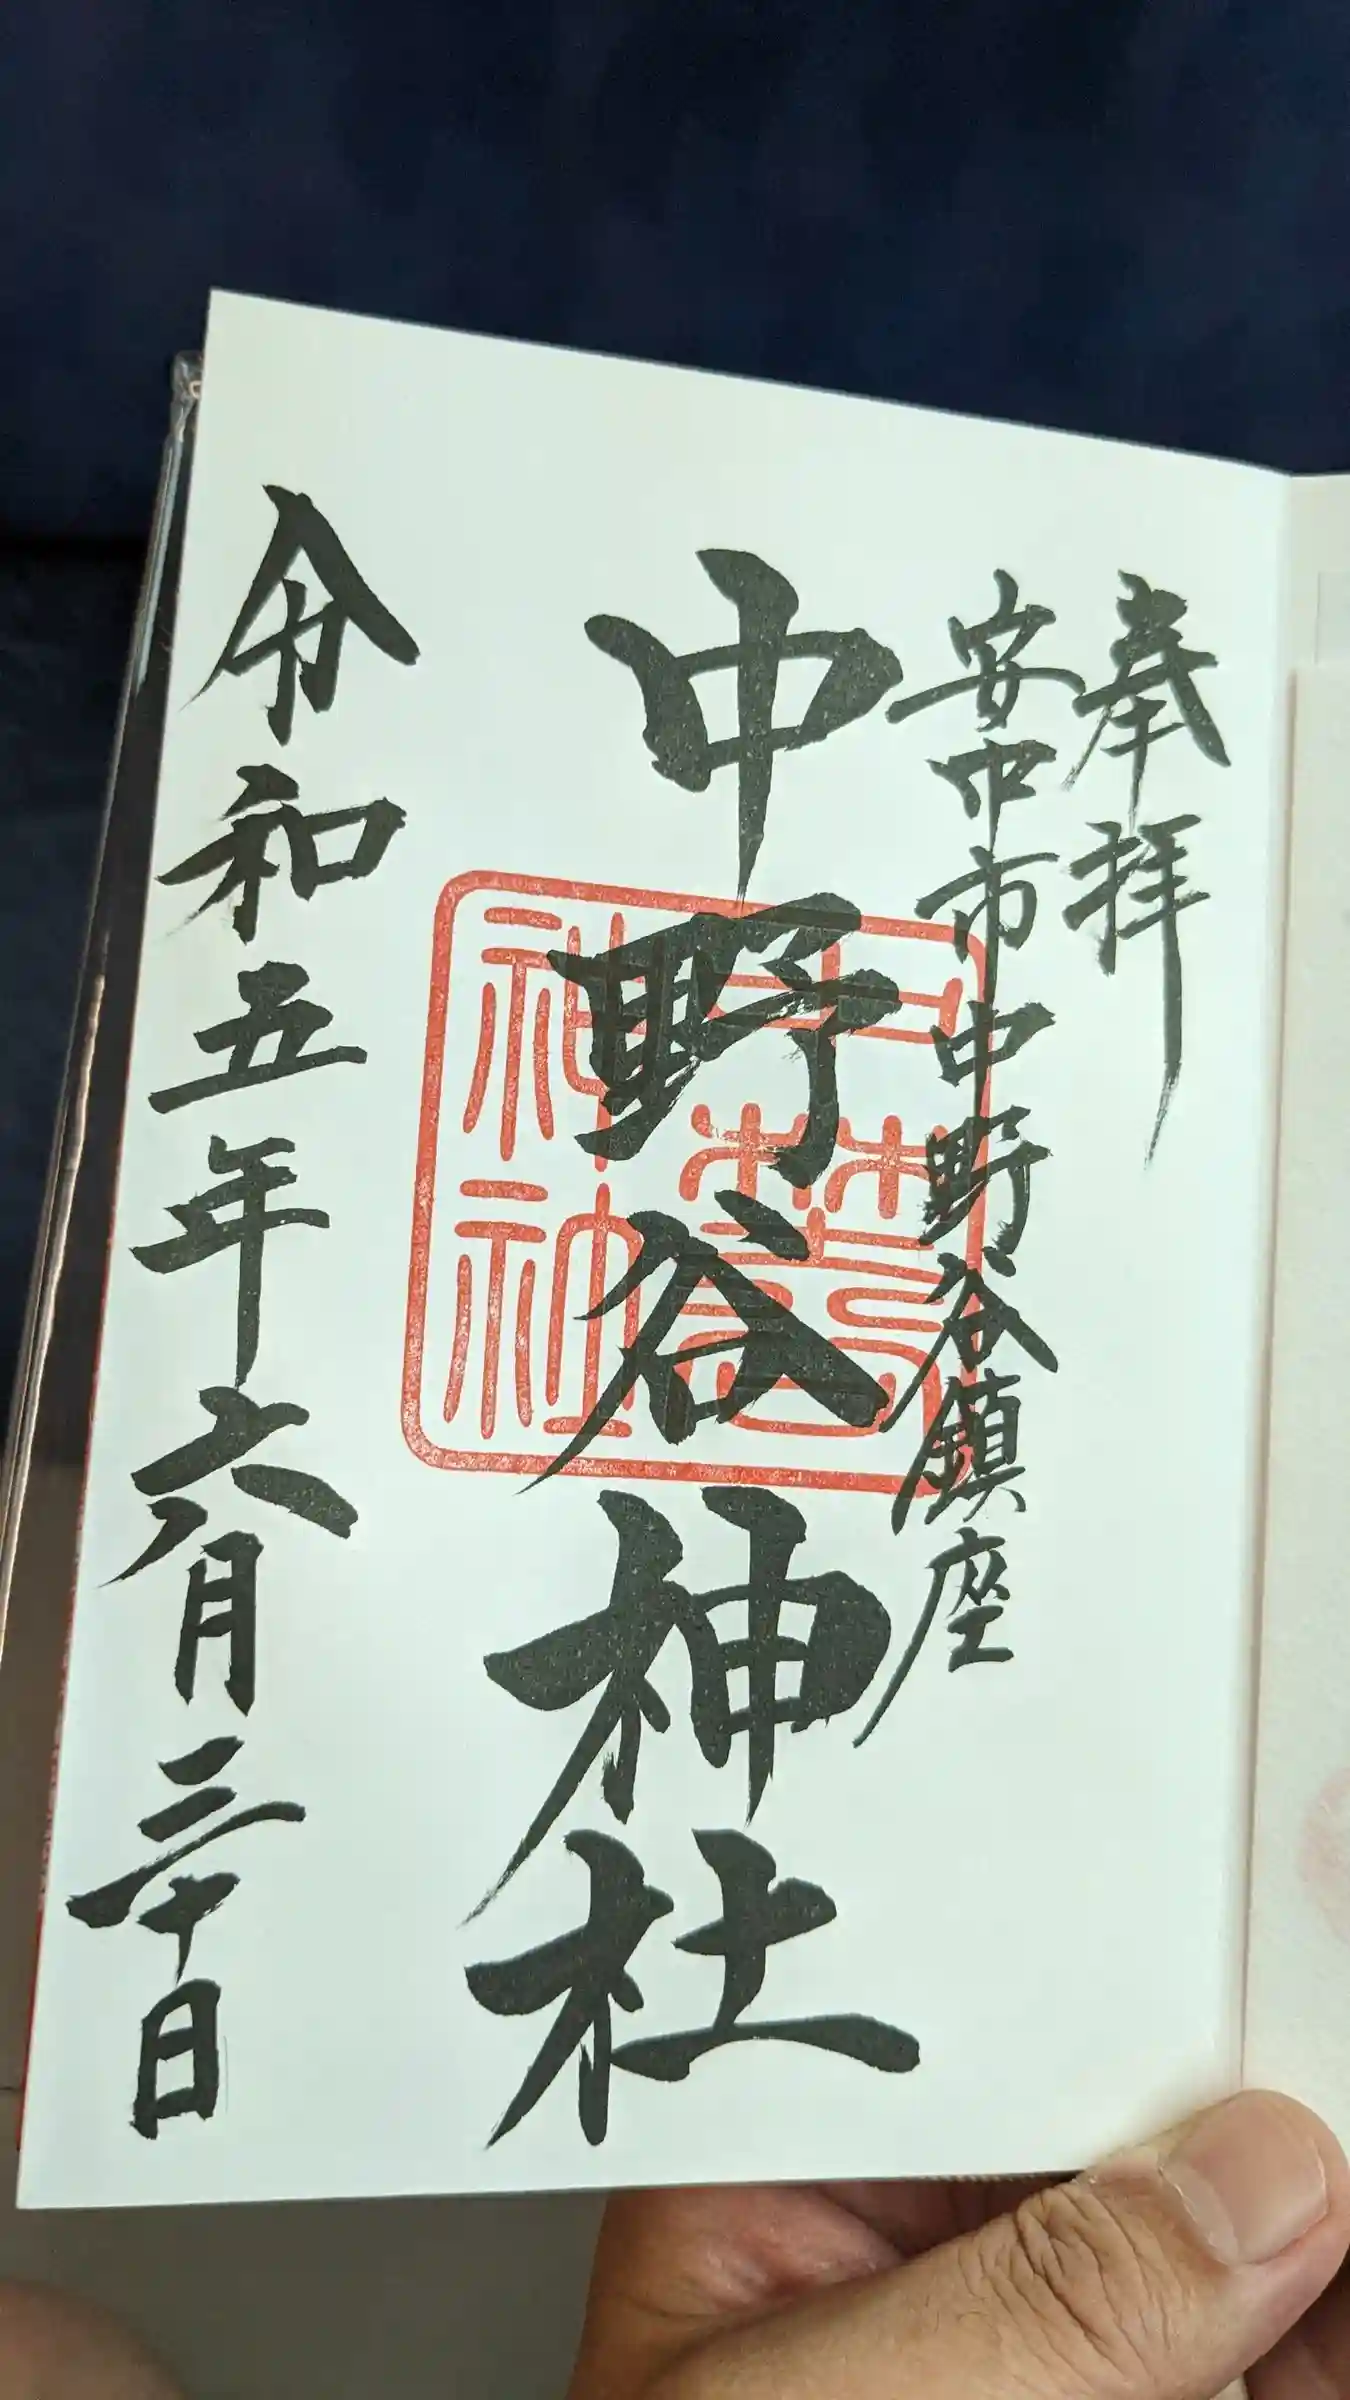 奉拝
安中市中野谷鎮座
中野谷神社
令和五年六月三十日